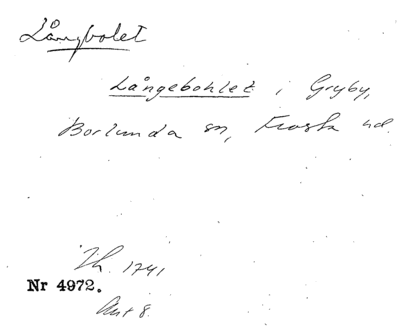 Långbolet
Långebohlet i Gryby,
Borlunda sn, Frosta hd.
Th. 1741
Nr 4972.
Akt 8.